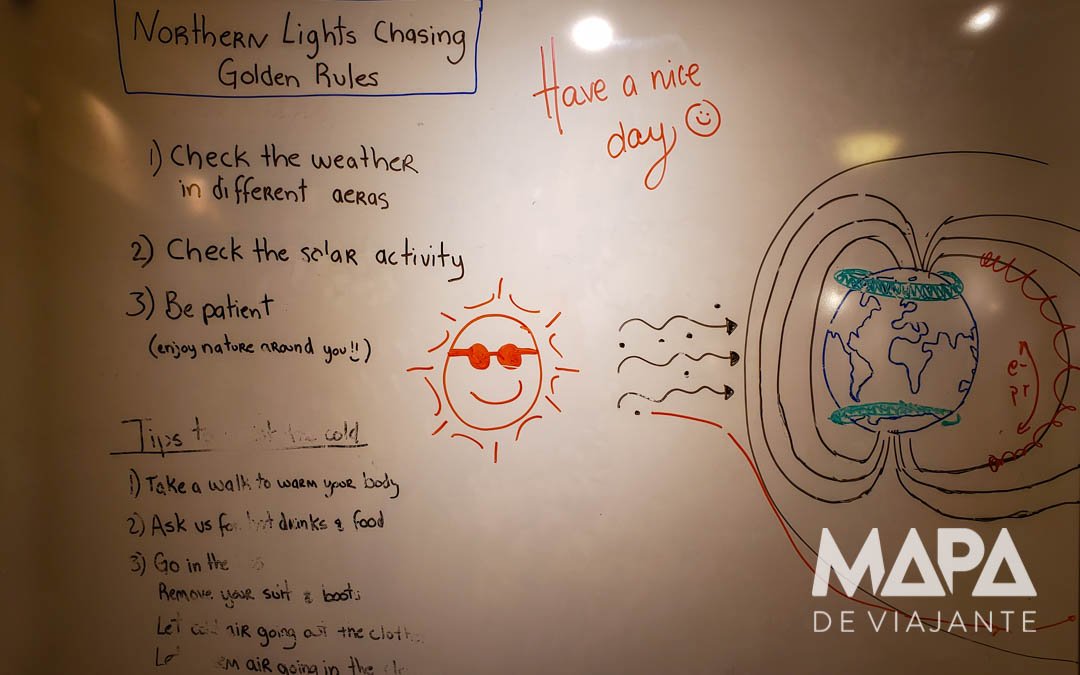 Northern Lights Chasing
Golden Rules
Have a nice
day
1) Check the weather
in different aeras
2) Check the solar activity
3) Be patient
(enjoy nature around you!!)
Tips to the cold
1) Take a walk to warm your body
2) Ask us for hot drinks & food
3) Go in the
Remove your suit & boots
Let cold air going out the
air going in the
e-
pr
MAPA
DE VIAJANTE